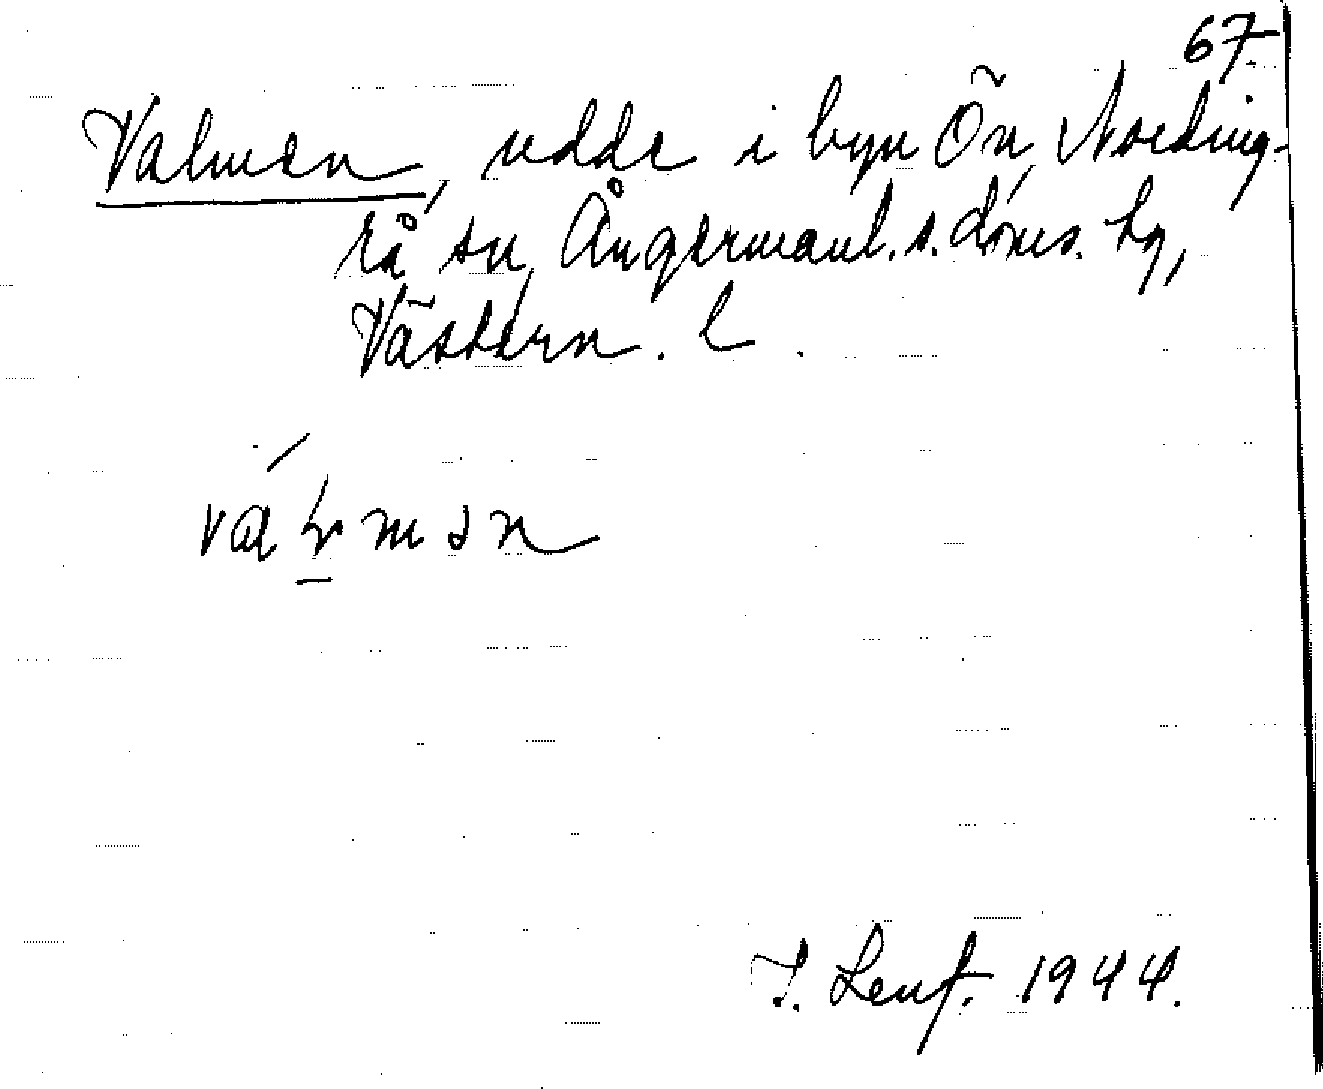 67
Valmen, udde i byn Ön, Nording-
rå sn, Ångermanl. s. doms. hg,
Västern. l.
I. Lenf. 1944.